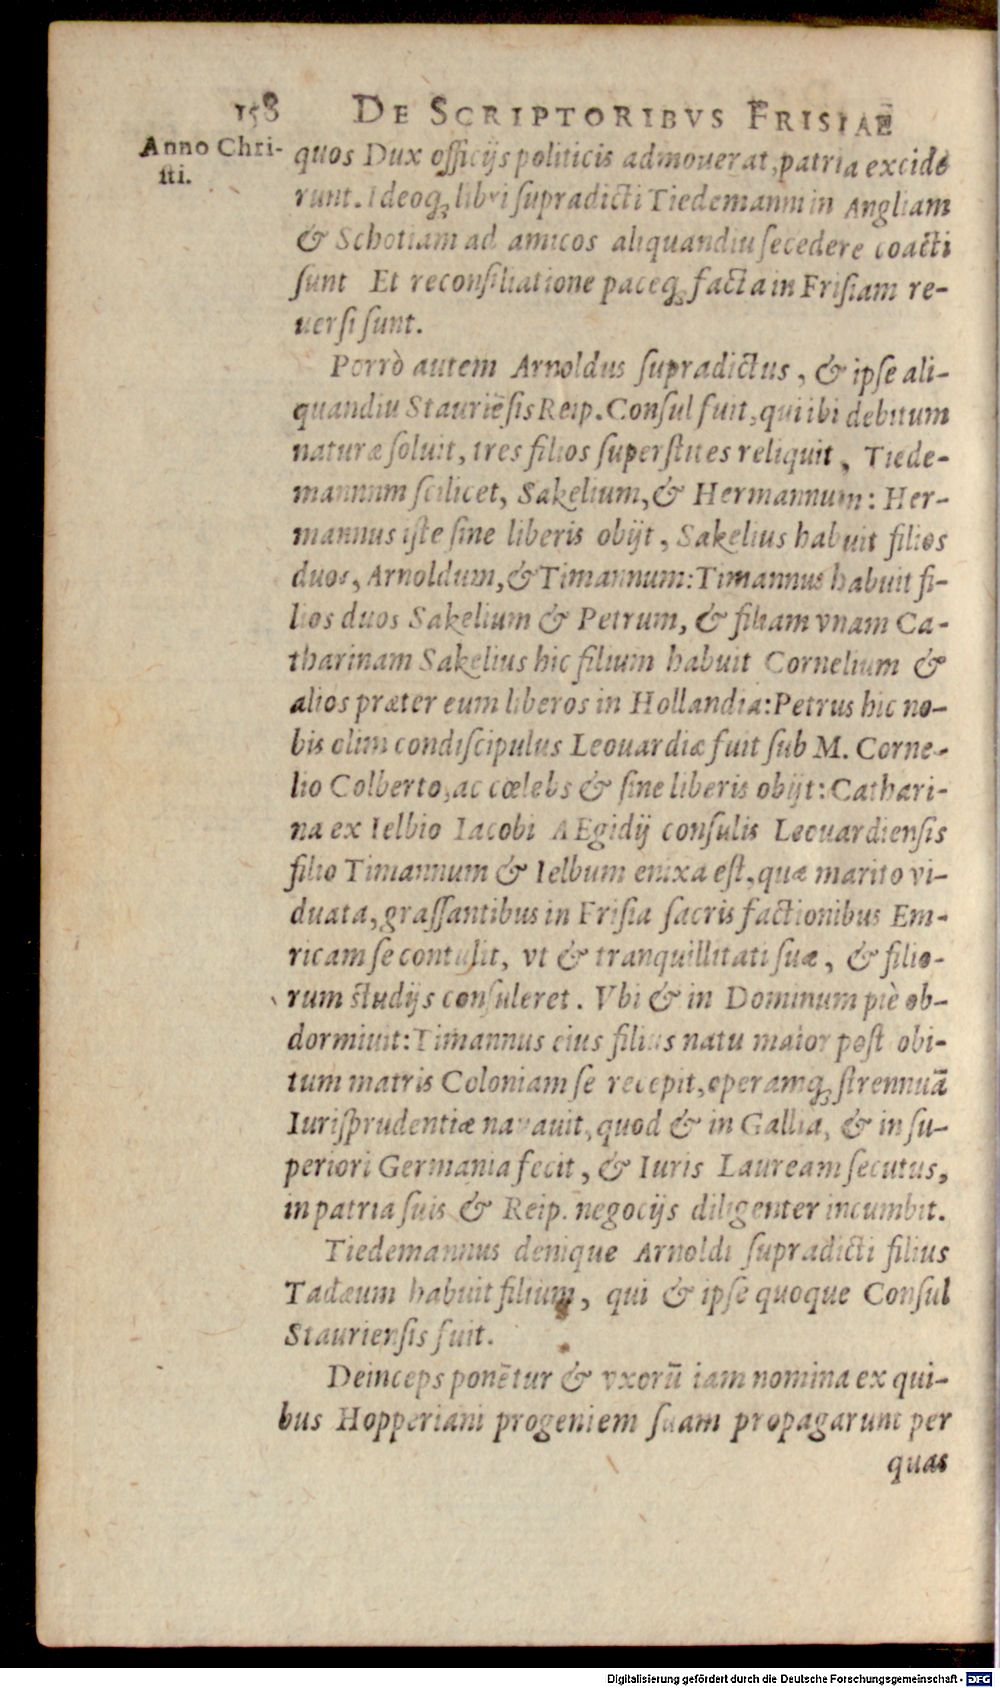 158 DE SCRIPTORIBVS FRISIAE
Anno Chri-
sti.
quos Dux officijs politicis admouerat, patria excide
runt. Ideoq́; libri supradicti Tiedemanni in Angliam
& Schotiam ad amicos aliquandiu secedere coacti
sunt Et reconsiliatione paceq́; facta in Frisiam re-
uersi sunt.
Porrò autem Arnoldus supradictus, & ipse ali-
quandiu Stauriẽsis Reip. Consul fuit, qui ibi debitum
naturæ soluit, tres filios superstites reliquit, Tiede-
mannum scilicet, Sakelium, & Hermannum: Her-
mannus iste sine liberis obijt, Sakelius habuit filios
duos, Arnoldum, & Timannum: Timannus habuit fi-
lios duos Sakelium & Petrum, & filiam vnam Ca-
tharinam Sakelius hic filium habuit Cornelium &
alios præter eum liberos in Hollandia: Petrus hic no-
bis olim condiscipulus Leouardiæ fuit sub M. Corne-
lio Colberto, ac cœlebs & sine liberis obijt: Cathari-
na ex Ielbio Iacobi AEgidij consulis Leouardiensis
filio Timannum & Ielbum enixa est, quæ marito vi-
duata, grassantibus in Frisia sacris factionibus Em-
ricam se contulit, vt & tranquillitati suæ, & filio-
rum studijs consuleret. Vbi & in Dominum piè ob-
dormiuit: Timannus eius filius natu maior post obi-
tum matris Coloniam se recepit, operamq́; strennuã
Iurisprudentiæ nauauit, quod & in Gallia, & in su-
periori Germania fecit, & Iuris Lauream secutus,
in patria suis & Reip. negocijs diligenter incumbit.
Tiedemannus denique Arnoldi supradicti filius
Tadæum habuit filium, qui & ipse quoque Consul
Stauriensis fuit.
Deinceps ponẽtur & vxorũ iam nomina ex qui-
bus Hopperiani progeniem suam propagarunt per
quas
Digitalisierung gefördert durch die Deutsche Forschungsgemeinschaft - DFG